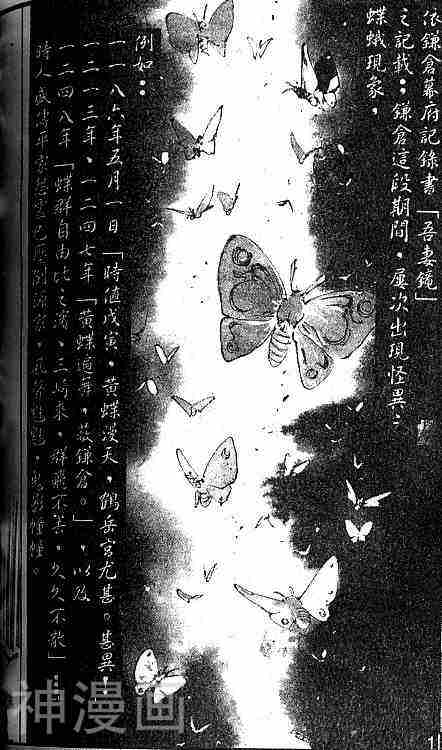 依鎌倉幕府記錄書「吾妻鏡」
之記載：鎌倉這段期間，屢次出現怪異：
蝶蛾現象，
例如：
一一八六年五月一日「時値戊寅，黃蝶漫天，鶴岳宮尤甚。甚異，
一二一三年、一二四七年「黃蝶遍舞，於鎌倉。」，以及
一二四八年「蝶群自由比之濱、三崎來，群飛不害，久久不散」…
時人
神漫画